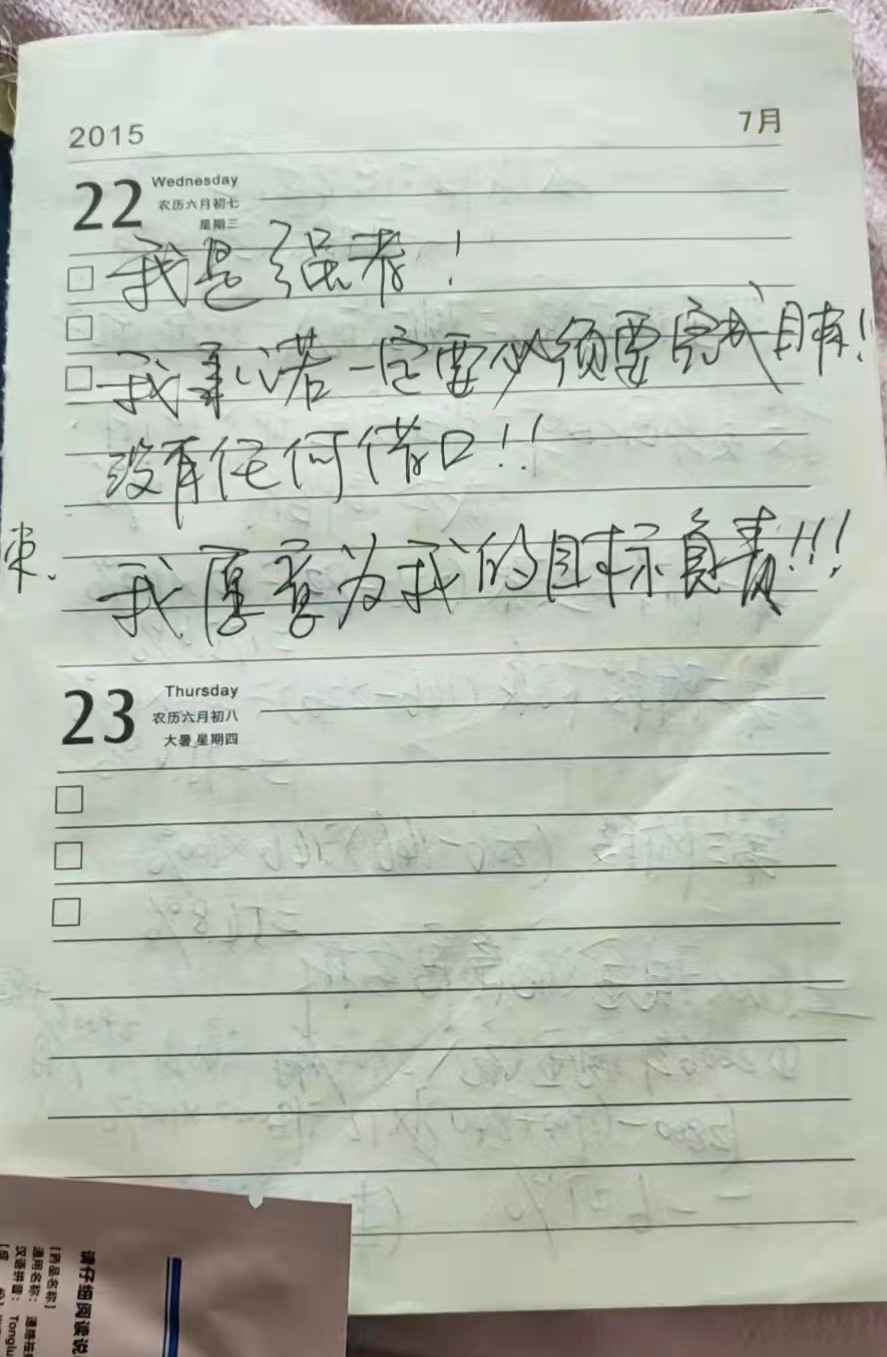 2015
7月
22 Wednesday
农历六月初七
星期三
我是强者！
我承诺一定要必须要完成目有！
没有任何借口！！
我愿意为我的目标负责！！！
23 Thursday
农历六月初八
大暑 星期四
请仔细阅读说
[药品名称]
通用名称：
汉语拼音： Tonglu